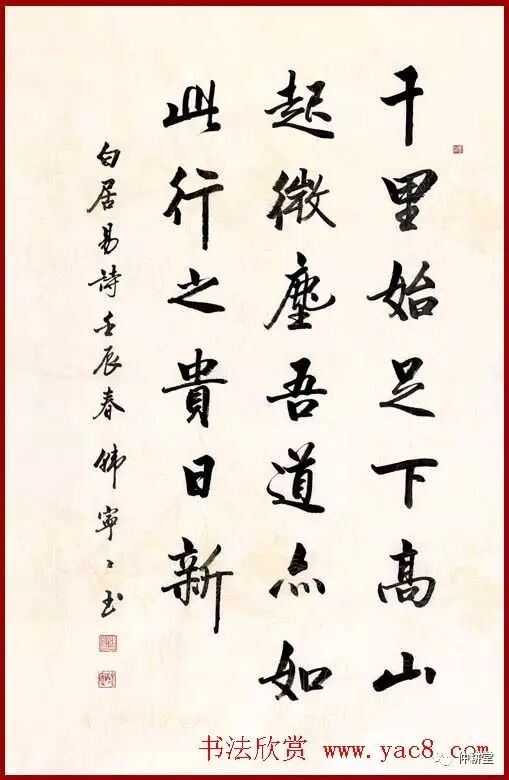 千里始足下高山
起微塵吾道亦如
此行之貴日新
白居易詩壬辰春韓寧寧玉
书法欣赏 www.yac8.com
仲耕堂